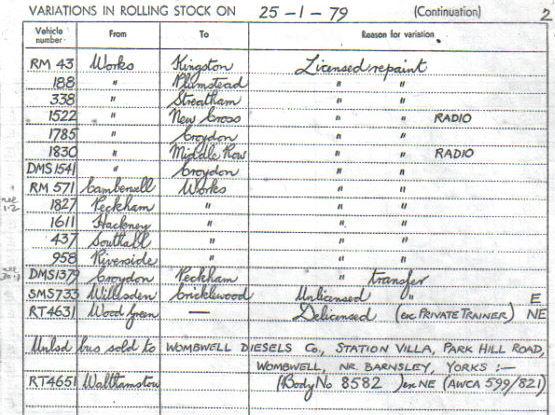 VARIATIONS IN ROLLING STOCK ON 25-1-79 (Continuation) 2
Vehicle number. From To Reason for variation.
RM 43 Works Kingston Licensed repaint
188 " Plumstead " "
338 " Streatham " "
1522 " New Cross " " RADIO
1785 " Croydon " "
1830 " Middle Row " " RADIO
DMS 1541 " Croydon " "
RM 571 Camberwell Works " "
1827 Peckham " " "
1611 Hackney " " "
437 Southall " " "
958 Riverside " " "
DMS1379 Croydon Peckham " transfer
SMS733 Willesden Cricklewood Unlicensed " E
RT4631 Wood Green — Delicensed (ex PRIVATE TRAINER) NE
Unlsd bus sold to WOMBWELL DIESELS Co., STATION VILLA, PARK HILL ROAD,
WOMBWELL, NR. BARNSLEY, YORKS :—
RT4651 Walthamstow (Body No 8582) ex NE (AWCA 599/821)